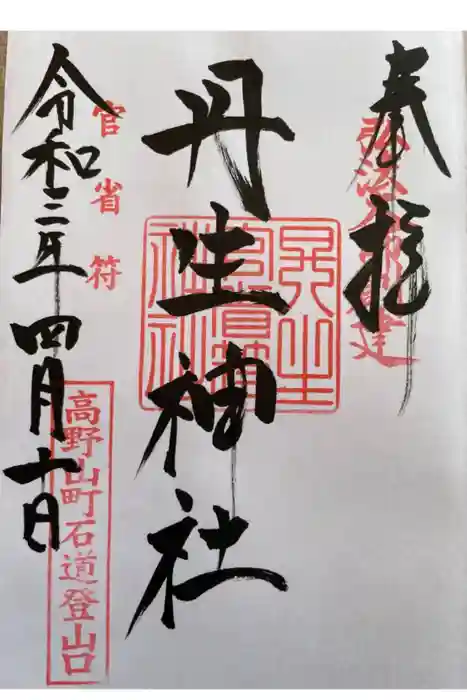 奉拝
弘法大師創建
丹生神社
丹生官省符神社
官省符
令和三年四月十日
高野山町石道登山口